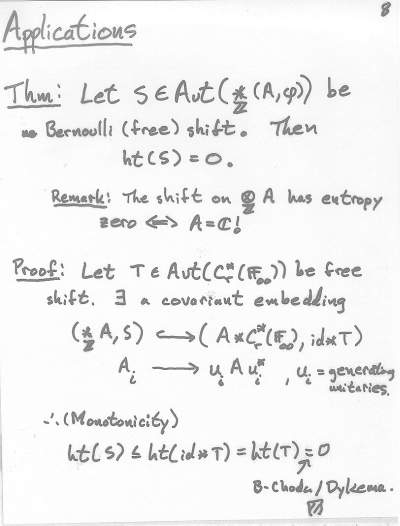 8
Applications
Thm: Let S ∈ Aut(*_ℤ (A, φ)) be
Bernoulli (free) shift. Then
ht(S) = 0.
Remark: The shift on ⊗_ℤ A has entropy
zero ⟺ A = ℂ!
Proof: Let T ∈ Aut(C*_r(𝔽_∞)) be free
shift. ∃ a covariant embedding
(*_ℤ A, S) ↪ (A * C*_r(𝔽_∞), id * T)
A_i → u_i A u_i^*, u_i = generating
unitaries.
∴ (Monotonicity)
ht(S) ≤ ht(id * T) = ht(T) = 0
↗
B-Choda/Dykema.